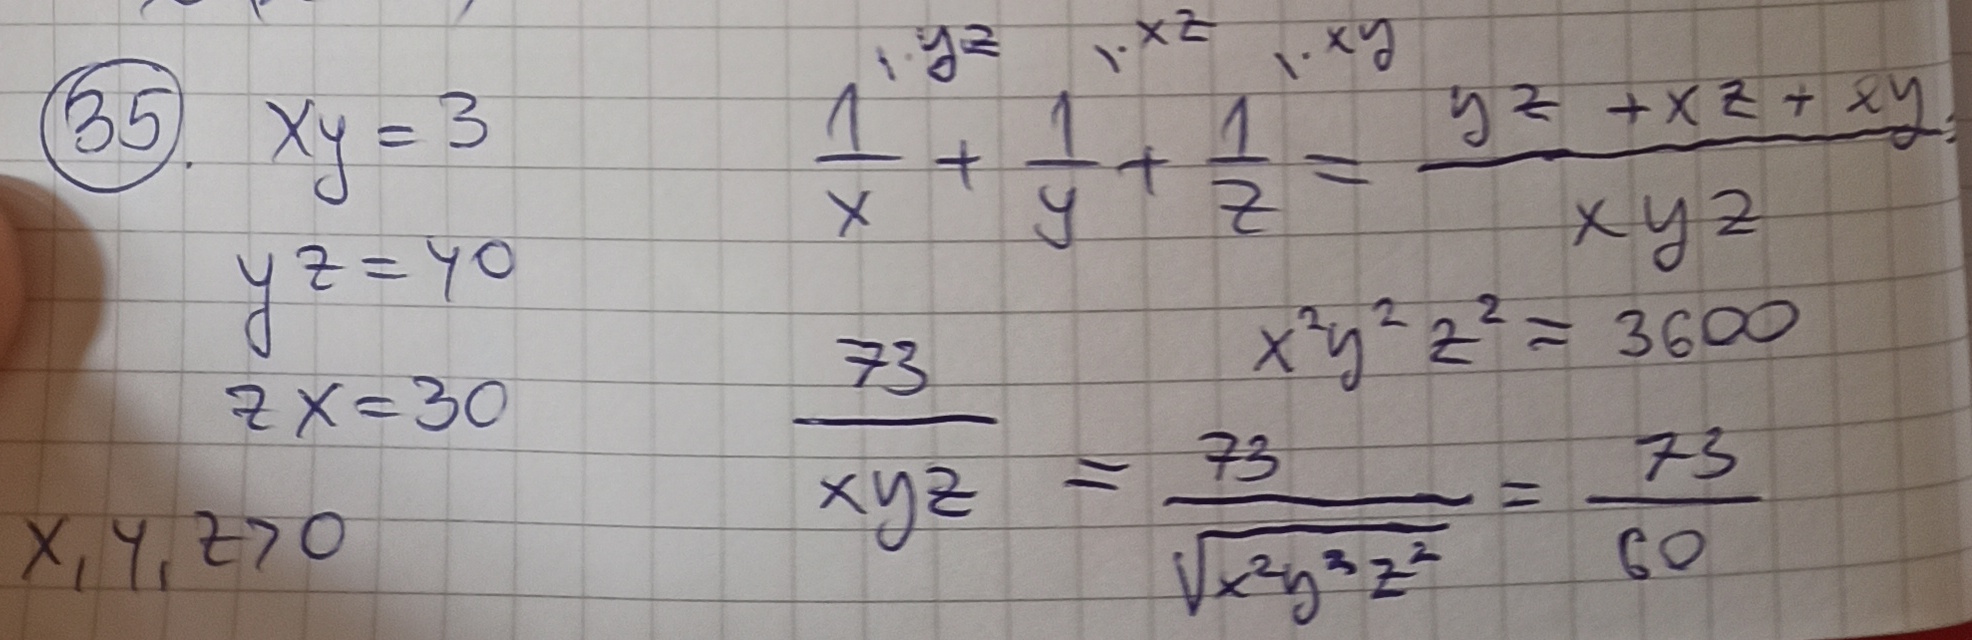 35. xy = 3
yz = 40
zx = 30
x, y, z > 0
\·yz \·xz \·xy
1/x + 1/y + 1/z = (yz + xz + xy)/(xyz) =
x²y²z² = 3600
73/(xyz) = 73/√(x²y²z²) = 73/60